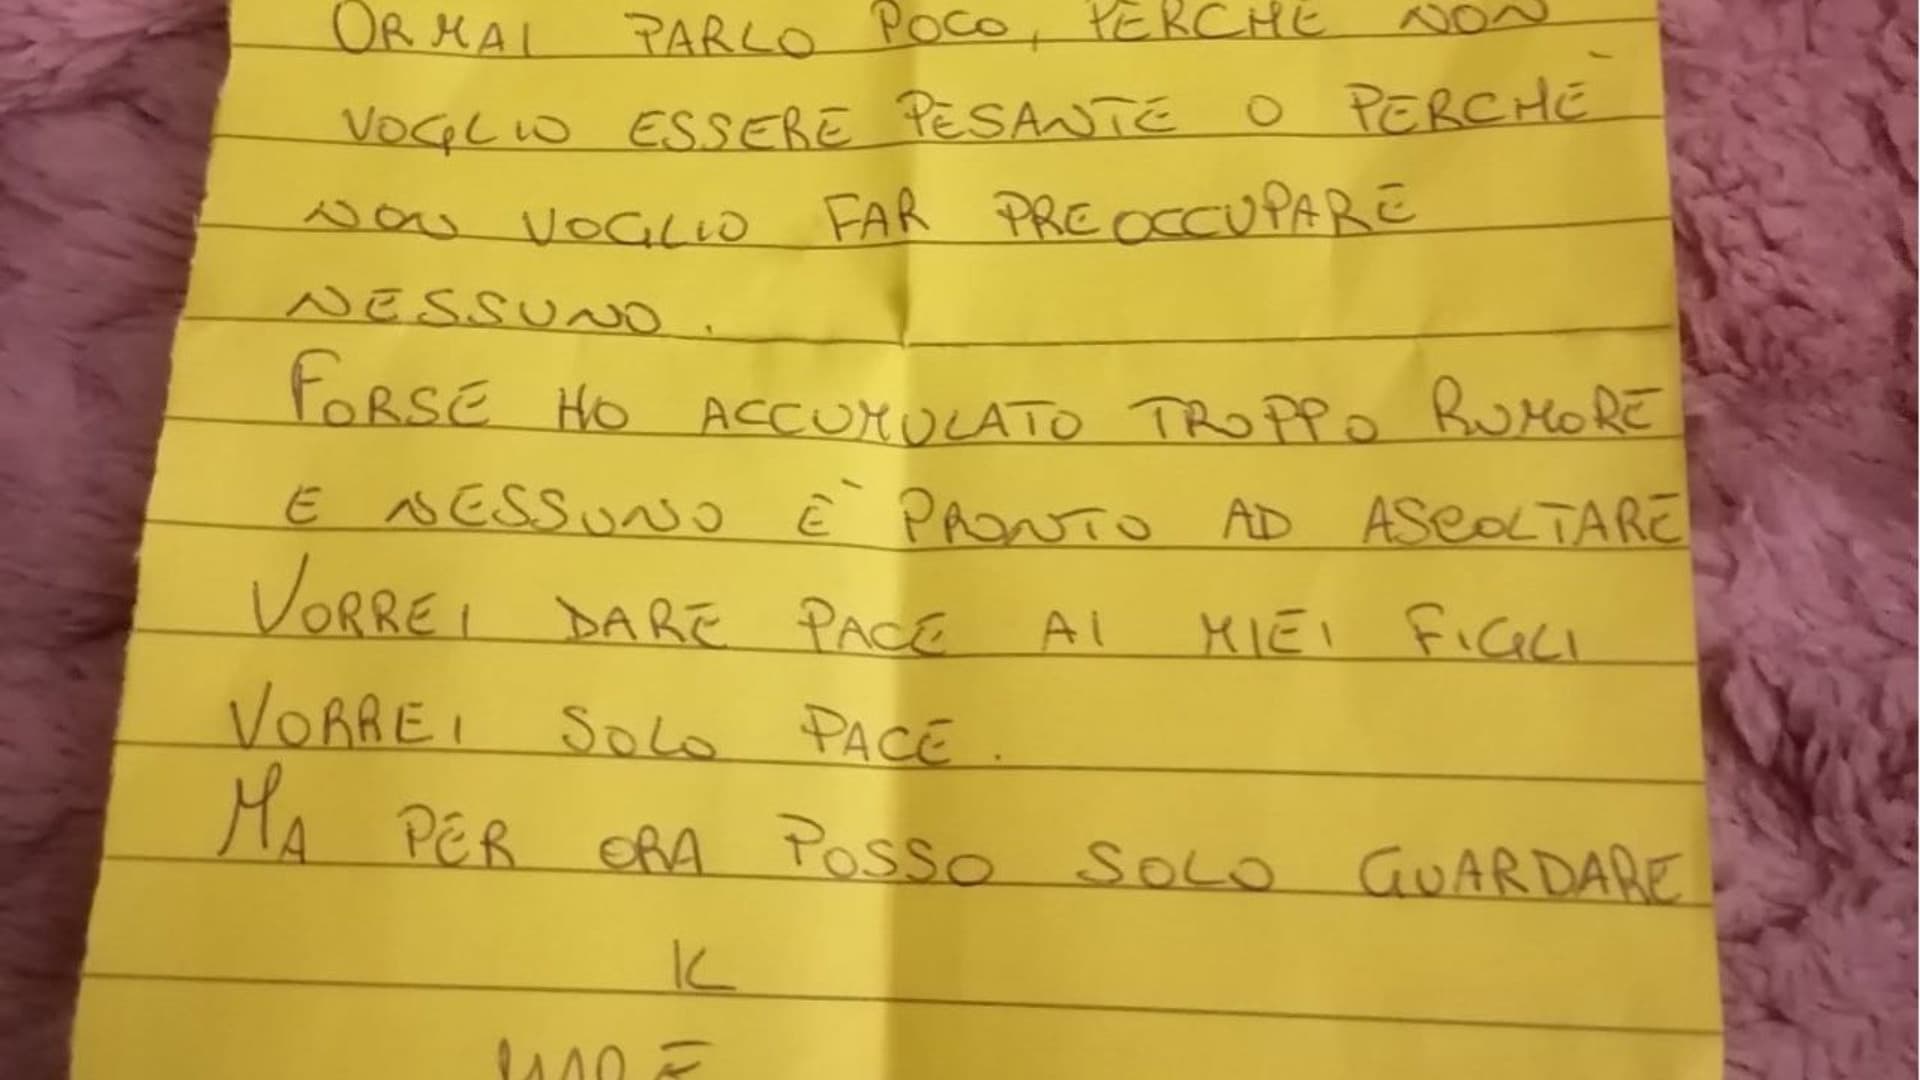 ORMAI PARLO POCO, PERCHÈ NON
VOGLIO ESSERE PESANTE O PERCHÈ
NON VOGLIO FAR PREOCCUPARE
NESSUNO.
FORSE HO ACCUMULATO TROPPO RUMORE
E NESSUNO È PRONTO AD ASCOLTARE
VORREI DARE PACE AI MIEI FIGLI
VORREI SOLO PACE.
MA PER ORA POSSO SOLO GUARDARE
IL
MARE